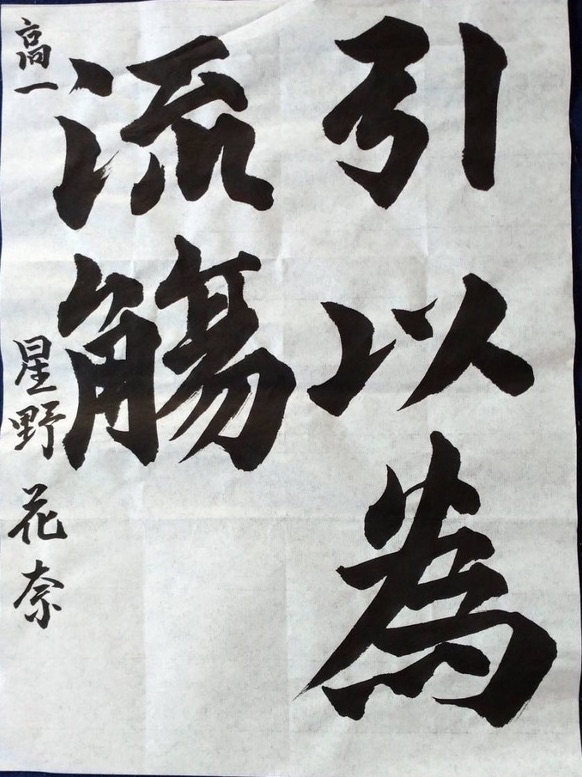 引以為
流觴
高一 星野花奈